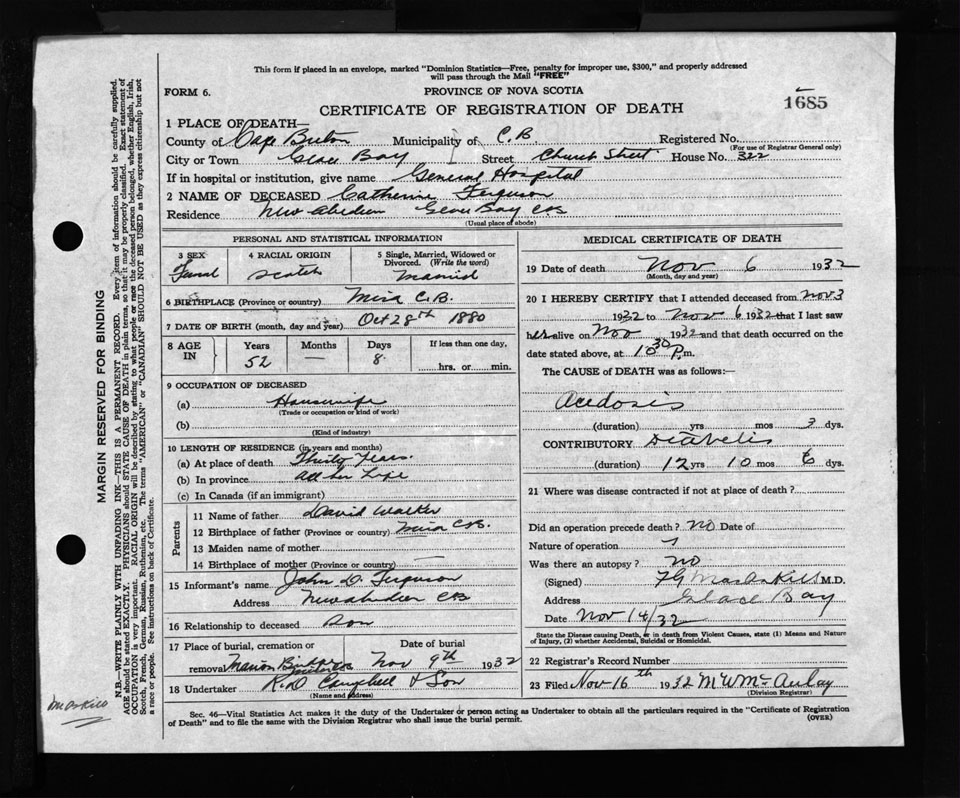 This form if placed in an envelope, marked "Dominion Statistics—Free, penalty for improper use, $300," and properly addressed
will pass through the Mail "FREE"
FORM 6.
PROVINCE OF NOVA SCOTIA
1685
CERTIFICATE OF REGISTRATION OF DEATH
1 PLACE OF DEATH—
County of Cape Breton Municipality of C.B. Registered No.
(For use of Registrar General only)
City or Town Glace Bay Street Church Street House No. 322
If in hospital or institution, give name General Hospital
2 NAME OF DECEASED Catherine Ferguson
Residence New Aberdeen Glace Bay CB
(Usual place of abode)
PERSONAL AND STATISTICAL INFORMATION
3 SEX 4 RACIAL ORIGIN 5 Single, Married, Widowed or
Divorced. (Write the word)
Scotch Married
6 BIRTHPLACE (Province or country) Mira C.B.
7 DATE OF BIRTH (month, day and year) Oct 28th 1880
8 AGE IN Years Months Days If less than one day,
52 — 8 hrs. or min.
9 OCCUPATION OF DECEASED
(a) Housewife
(Trade or occupation or kind of work)
(b)
(Kind of industry)
10 LENGTH OF RESIDENCE (in years and months)
(a) At place of death Thirty Years.
(b) In province All her Life
(c) In Canada (if an immigrant)
Parents
11 Name of father David Walker
12 Birthplace of father (Province or country) Mira CB.
13 Maiden name of mother
14 Birthplace of mother (Province or country) —
15 Informant's name John D. Ferguson
Address New Aberdeen CB
16 Relationship to deceased Son
17 Place of burial, cremation or Date of burial
removal Marion Bridge Nov 9th 1932
18 Undertaker R.D. Campbell & Son
(Name and address)
MEDICAL CERTIFICATE OF DEATH
19 Date of death Nov 6 1932
(Month, day and year)
20 I HEREBY CERTIFY that I attended deceased from Nov 3
1932 to Nov 6 1932 that I last saw
her alive on Nov 1932 and that death occurred on the
date stated above, at 10 30 P.m.
The CAUSE of DEATH was as follows:—
Acedosis
(duration) yrs mos 3 dys.
CONTRIBUTORY Diabetis
(duration) 12 yrs 10 mos 6 dys.
21 Where was disease contracted if not at place of death?
Did an operation precede death? No Date of
Nature of operation
Was there an autopsy? No
(Signed) MacAskill M.D.
Address Glace Bay
Date Nov 14/32
State the Disease causing Death, or in death from Violent Causes, state (1) Means and Nature
of Injury, (2) whether Accidental, Suicidal or Homicidal.
22 Registrar's Record Number
23 Filed Nov 16th 1932 M W McAulay
(Division Registrar)
Sec. 46—Vital Statistics Act makes it the duty of the Undertaker or person acting as Undertaker to obtain all the particulars required in the "Certificate of Registration
of Death" and to file the same with the Division Registrar who shall issue the burial permit. (OVER)
MARGIN RESERVED FOR BINDING
N.B.—WRITE PLAINLY WITH UNFADING INK—THIS IS A PERMANENT RECORD. Every item of information should be carefully supplied.
AGE should be stated EXACTLY. PHYSICIANS should STATE CAUSE OF DEATH in plain terms, so that it may be properly classified. Exact statement of
OCCUPATION is very important. RACIAL ORIGIN will be described by stating to what people or race the deceased person belonged, whether English, Irish,
Scotch, French, German, Russian, Ruthenian, etc. The terms "AMERICAN" or "CANADIAN" SHOULD NOT BE USED as they express citizenship but not
a race or people. See instructions on back of Certificate.
MacAskill